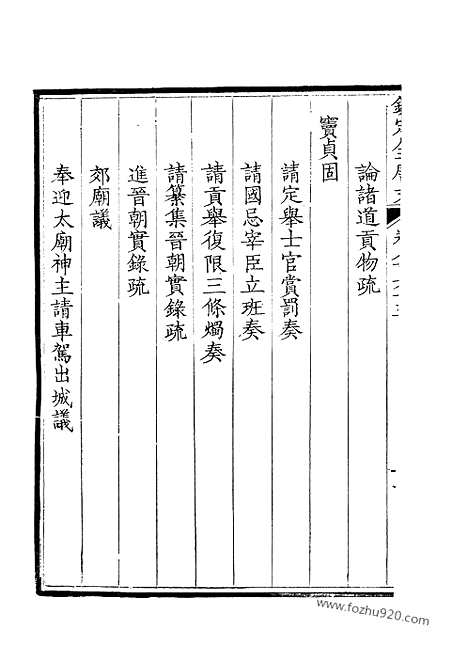 論諸道貢物疏
竇貞固
請定舉士官賞罰奏
請國忌宰臣立班奏
請貢舉復限三條燭奏
請纂集晉朝實錄疏
進晉朝實錄疏
郊廟議
奉迎太廟神主請車駕出城議
www.fozhu920.com